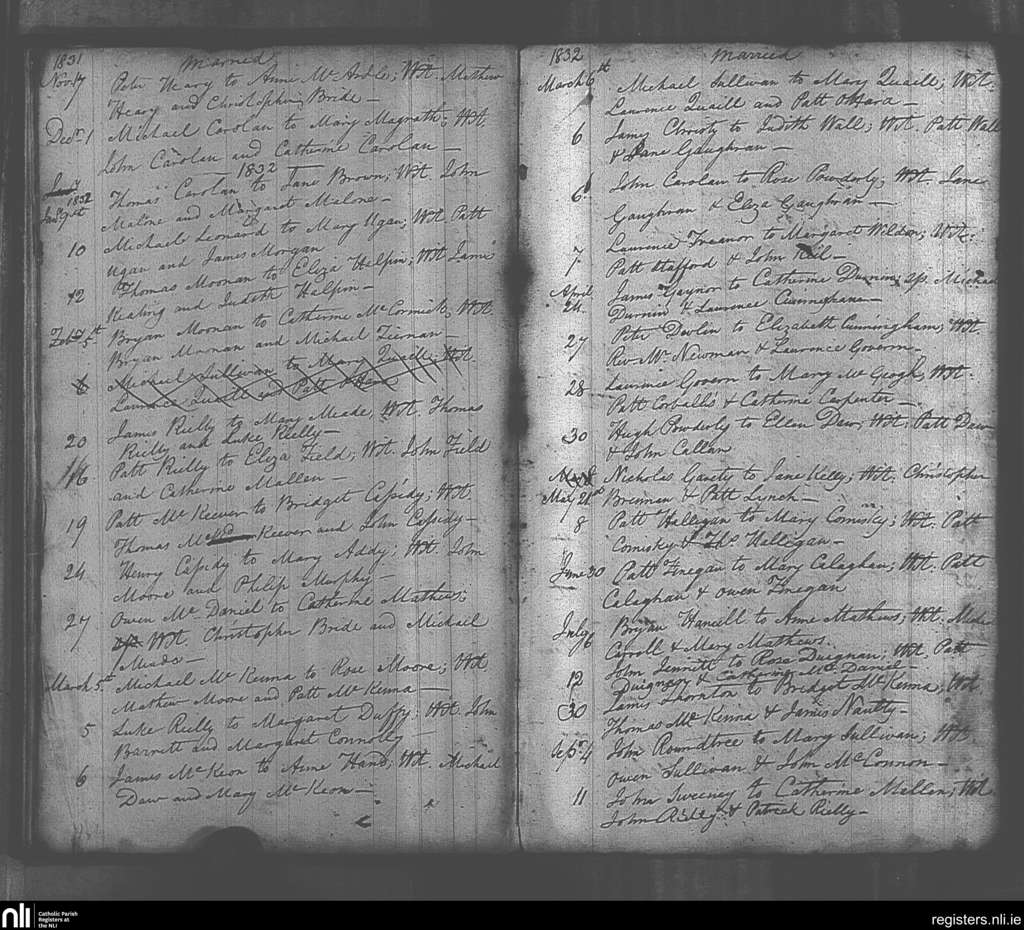 1831 Married
Novr 17 Peter Heary to Anne Mc Ardle; Wit. Mathew
Heary and Christopher Bride —
Decr. 1 Michael Carolan to Mary Magrath; Wit.
John Carolan and Catherine Carolan —
— 1832 —
1832
Jany. 9th Thomas Carolan to Jane Brown; Wit. John
Malone and Margaret Malone —
10 Michael Leonard to Mary Ugan; Wit. Patt
Ugan and James Morgan
12 Thomas Moonan to Eliza Halpin; Wit
Keating and Judith Halpin —
Feby. 5th Bryan Moonan to Catherine Mc Cormick; Wit.
Bryan Moonan and Michael Tiernan —
6 Michael Sullivan to Mary Quaill; Wit
Laurence Quaill and Patt O Hara
20 James Reilly to Mary Meade, Wit. Thomas
Reilly and Luke Reilly —
16 Patt Reilly to Eliza Field; Wit. John Field
and Catherine Mallen —
19 Patt Mc Keever to Bridget Cassidy; Wit.
Thomas Mc Keever and John Cassidy —
24 Henry Cassidy to Mary Addy; Wit. John
Moore and Philip Murphy —
27 Owen Mc Daniel to Catherine Mathews;
Wit. Christopher Bride and Michael
Meade —
March 5th Michael Mc Kenna to Rose Moore; Wit
Mathew Moore and Patt Mc Kenna —
5 Luke Reilly to Margaret Duffy; Wit. John
Barnett and Margaret Connolly —
6 James Mc Keon to Anne Hand; Wit. Michael
Daw and Mary Mc Keon —
1832 Married
March 6th Michael Sullivan to Mary Quaill; Wit.
Laurence Quaill and Patt O Hara —
6 James Christy to Judith Wall; Wit. Patt Wall
& Jane Gaughran —
6 John Carolan to Rose Powderly; Wit. Jane
Gaughran & Eliza Gaughran —
Laurence Treanor to Margaret Wildon; Wit:
7 Patt Stafford & John Keil —
April
24. James Gaynor to Catherine Durnin; Michael
Durnin & Laurence Cunningham —
27 Peter Devlin to Elizabeth Cunningham; Wit
Revd. Mr. Newman & Laurence Govern —
28 Laurence Govern to Mary Mc Geogh, Wit.
Patt Corballis & Catherine Carpenter —
30 Hugh Powderly to Ellen Daw; Wit. Patt Daw
& John Callan
May 21st Nicholas Garety to Jane Kelly; Wit. Christopher
Brennan & Patt Lynch —
8 Patt Halligan to Mary Comisky; Wit. Patt
Comisky & Thos. Halligan —
June 30 Patt Finegan to Mary Calaghan; Wit. Patt
Calaghan & Owen Finegan
July 6 Bryan Hamill to Anne Mathews; Wit.
Carroll & Mary Mathews.
12 John Jennett to Rose Duignan; Wit. Patt
Duignan & Catherine Mc Daniel —
30 James Thornton to Bridget Mc Kenna; Wit.
Thomas Mc Kenna & James Naulty —
Sepr. 4 John Roundtree to Mary Sullivan; Wit.
Owen Sullivan & John McConnon —
11 John Sweeney to Catherine Mallen; Wit.
John Reilly & Patrick Reilly —
nli Catholic Parish
Registers at
the NLI
registers.nli.ie